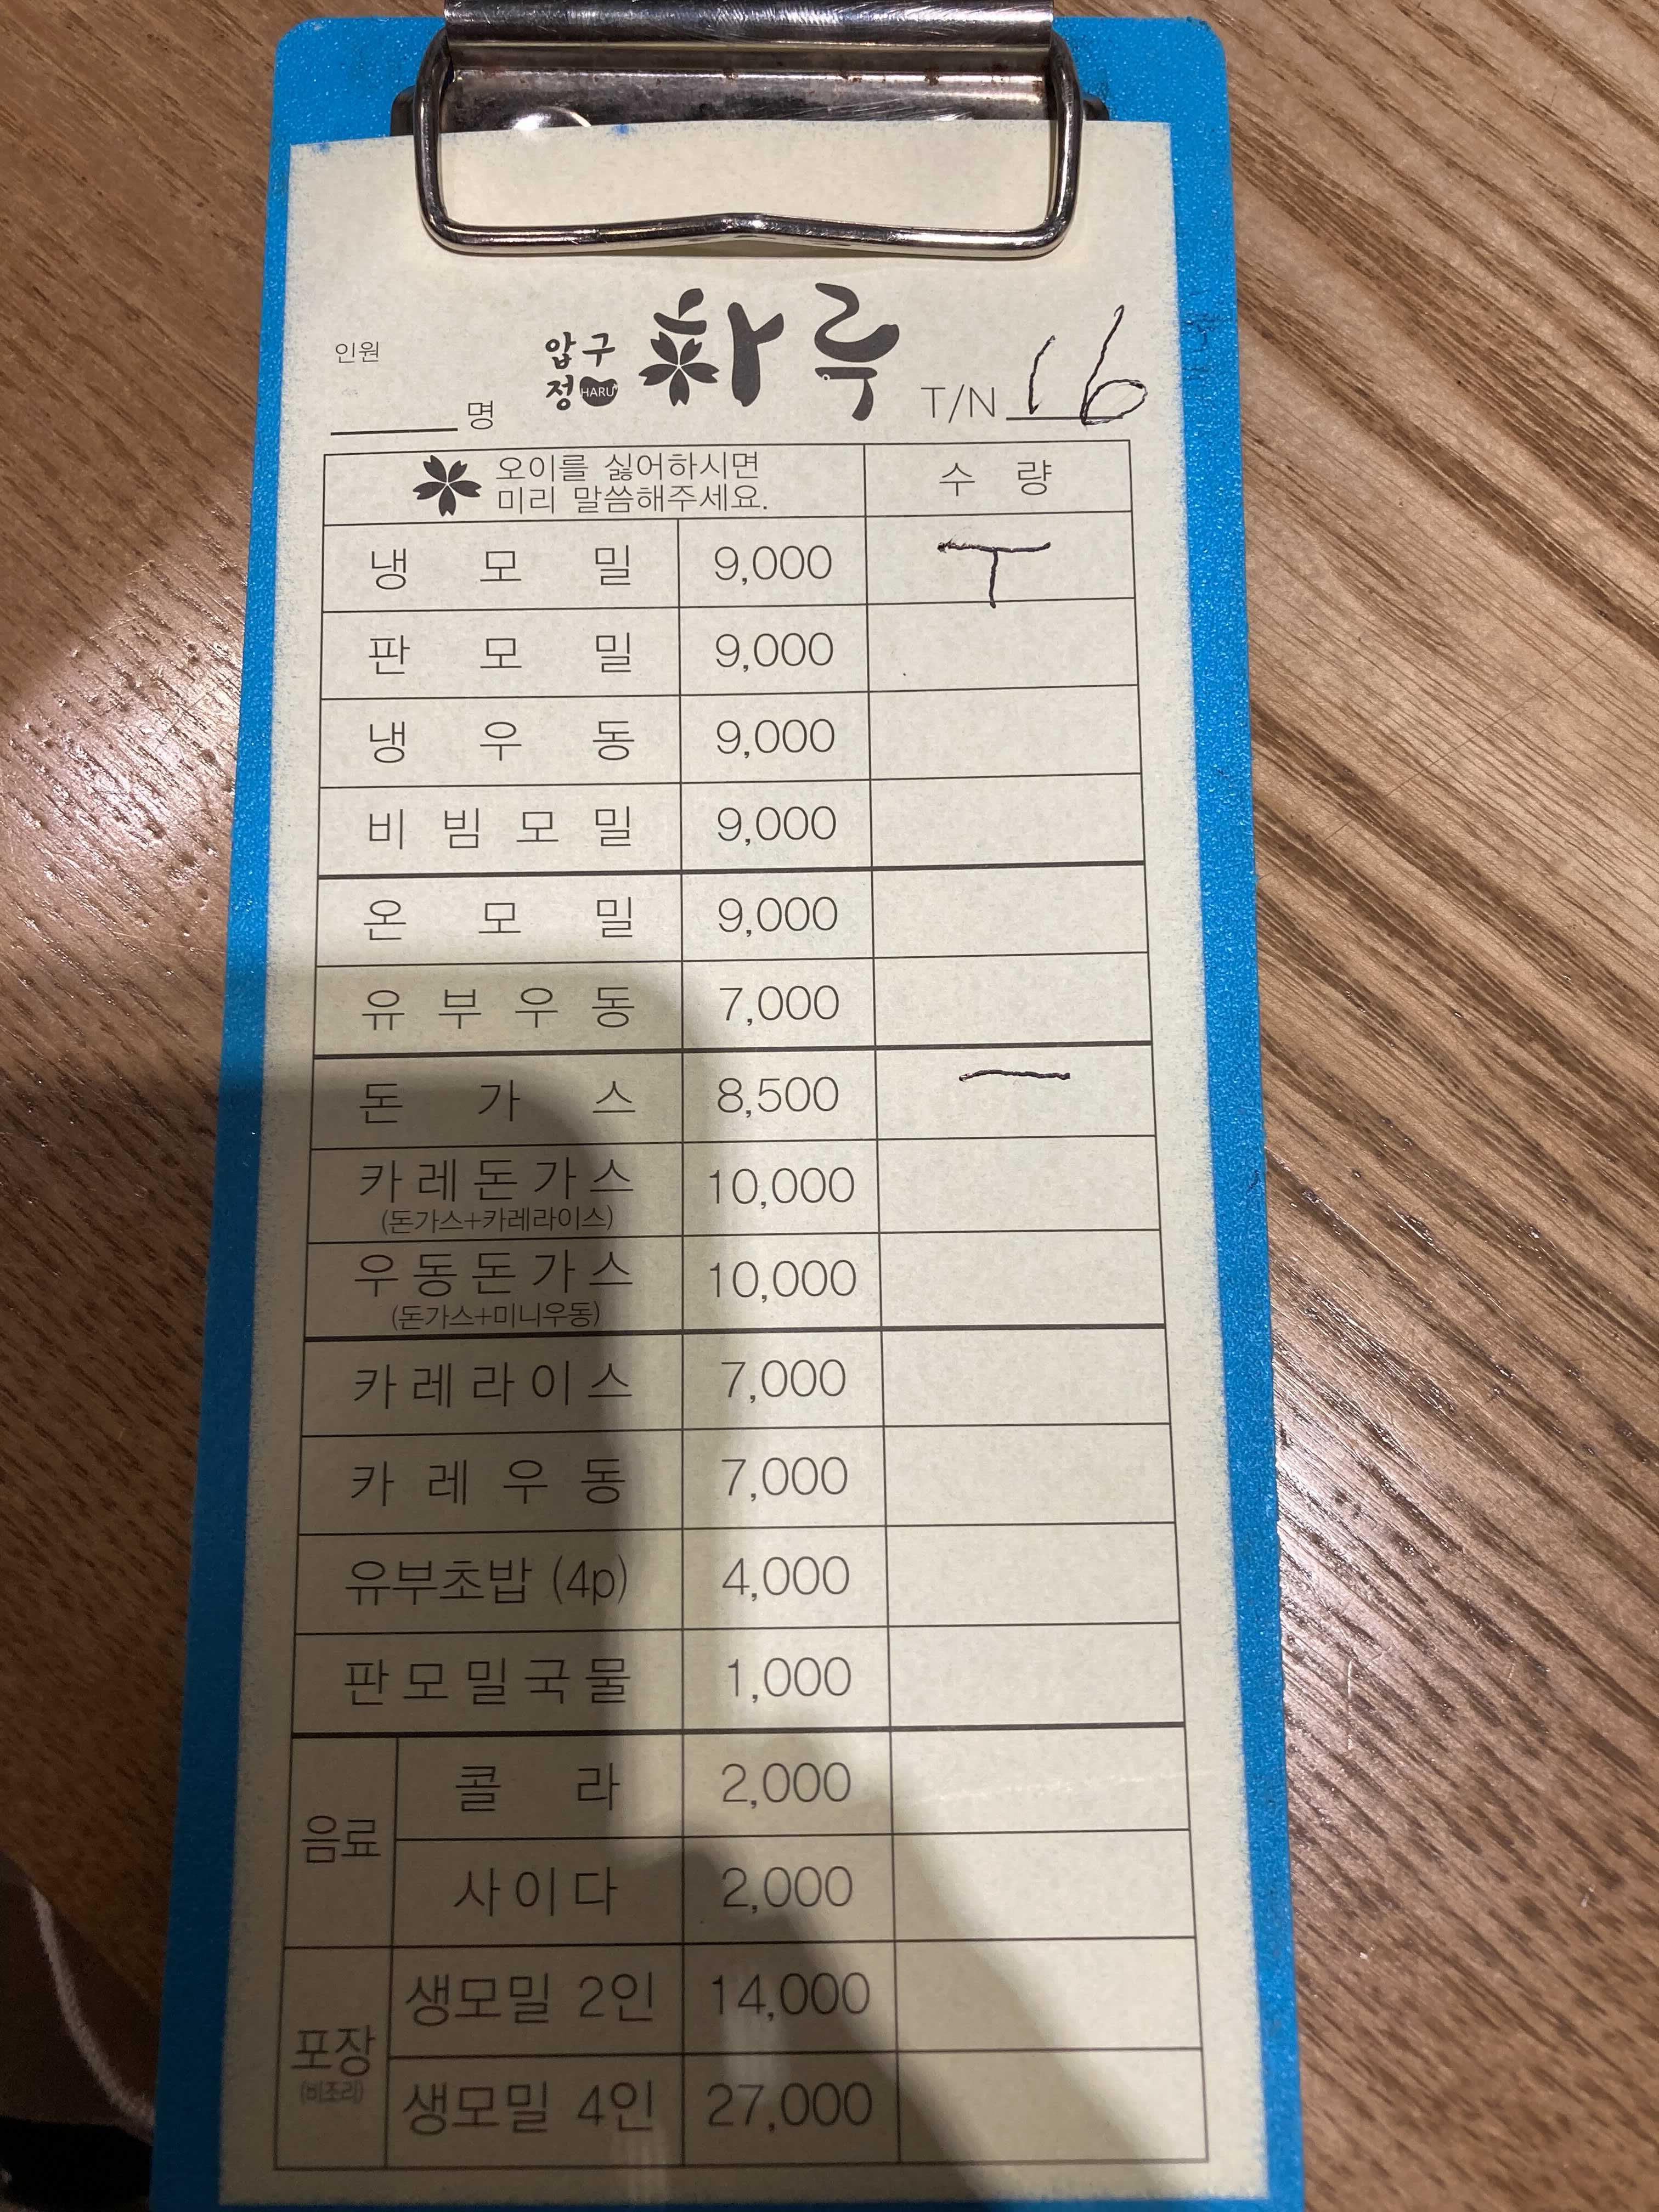 인원
명
압구정 HARU 하루
T/N 16
오이를 싫어하시면
미리 말씀해주세요.
수 량
냉 모 밀 9,000 T
판 모 밀 9,000
냉 우 동 9,000
비 빔 모 밀 9,000
온 모 밀 9,000
유 부 우 동 7,000
돈 가 스 8,500 一
카 레 돈 가 스 10,000
(돈가스+카레라이스)
우 동 돈 가 스 10,000
(돈가스+미니우동)
카 레 라 이 스 7,000
카 레 우 동 7,000
유부초밥 (4p) 4,000
판 모 밀 국 물 1,000
음료
콜 라 2,000
사 이 다 2,000
포장
(비조리)
생모밀 2인 14,000
생모밀 4인 27,000